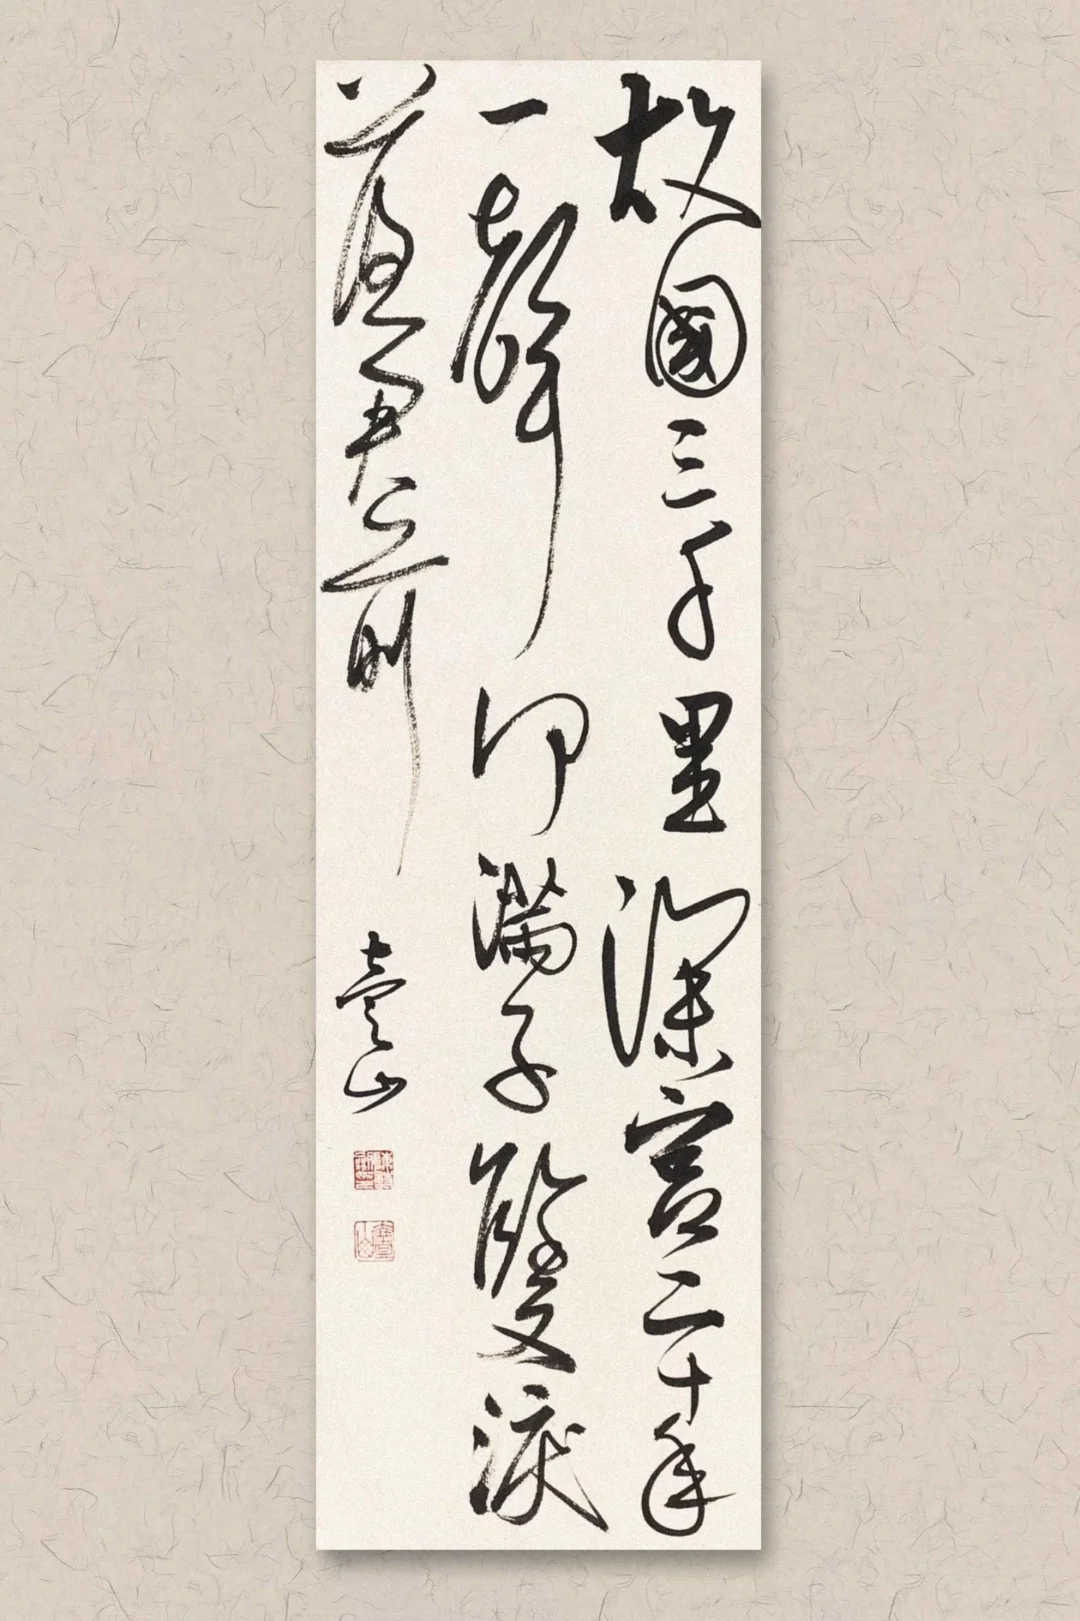 故國三千里深宮二十年
一聲何滿子雙淚
落君前
山